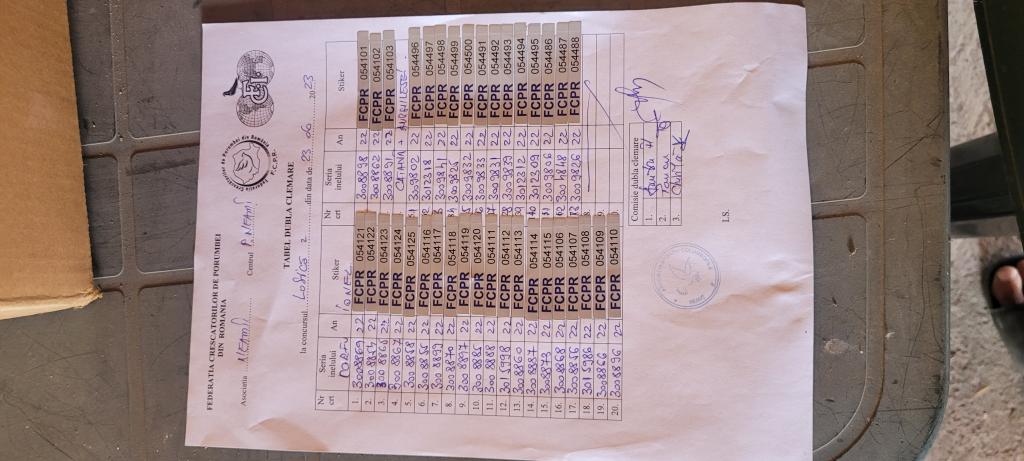 FEDERATIA CRESCATORILOR DE PORUMBEI
DIN ROMANIA
Asociatia NEAMT Centrul P. NEAMT
Federatia Crescatorilor de Porumbei din Romania
F.C.P.R.
FCI
TABEL DUBLA CLEMARE
la concursul Lodica 2 din data de 23 06 2023
Nr crt Seria inelului An Stiker Nr crt Seria inelului An Stiker
IONEL
1. 3008869 22 FCPR 054121 3008898 22 FCPR 054101
2. 22 FCPR 054122 3008862 22 FCPR 054102
3. 22 FCPR 054123 3008891 22 FCPR 054103
4. 3008867 22 FCPR 054124 CATANA + AURELESEI
5. 3008858 22 FCPR 054125 3009802 22 FCPR 054496
6. 22 FCPR 054116 3012318 22 FCPR 054497
7. 3008899 22 FCPR 054117 3009841 22 FCPR 054498
8. 3008870 22 FCPR 054118 3009824 22 FCPR 054499
9. 3008897 22 FCPR 054119 3009832 22 FCPR 054500
10. 3008885 22 FCPR 054120 3009833 22 FCPR 054491
11. 3008888 22 FCPR 054111 3009831 22 FCPR 054492
12. 3015998 22 FCPR 054112 3009839 22 FCPR 054493
13. 3008860 22 FCPR 054113 3012312 22 FCPR 054494
14. 3008887 22 FCPR 054114 3012309 22 FCPR 054495
15. 3008873 22 FCPR 054115 22 FCPR 054486
16. 3008868 22 FCPR 054106 3009848 22 FCPR 054487
17. 3008856 22 FCPR 054107 3009826 22 FCPR 054488
18. 3015986 22 FCPR 054108
19. 3008866 22 FCPR 054109
20. 3008896 22 FCPR 054110
Comisie dubla clemare
1.
2.
3.
I.S.